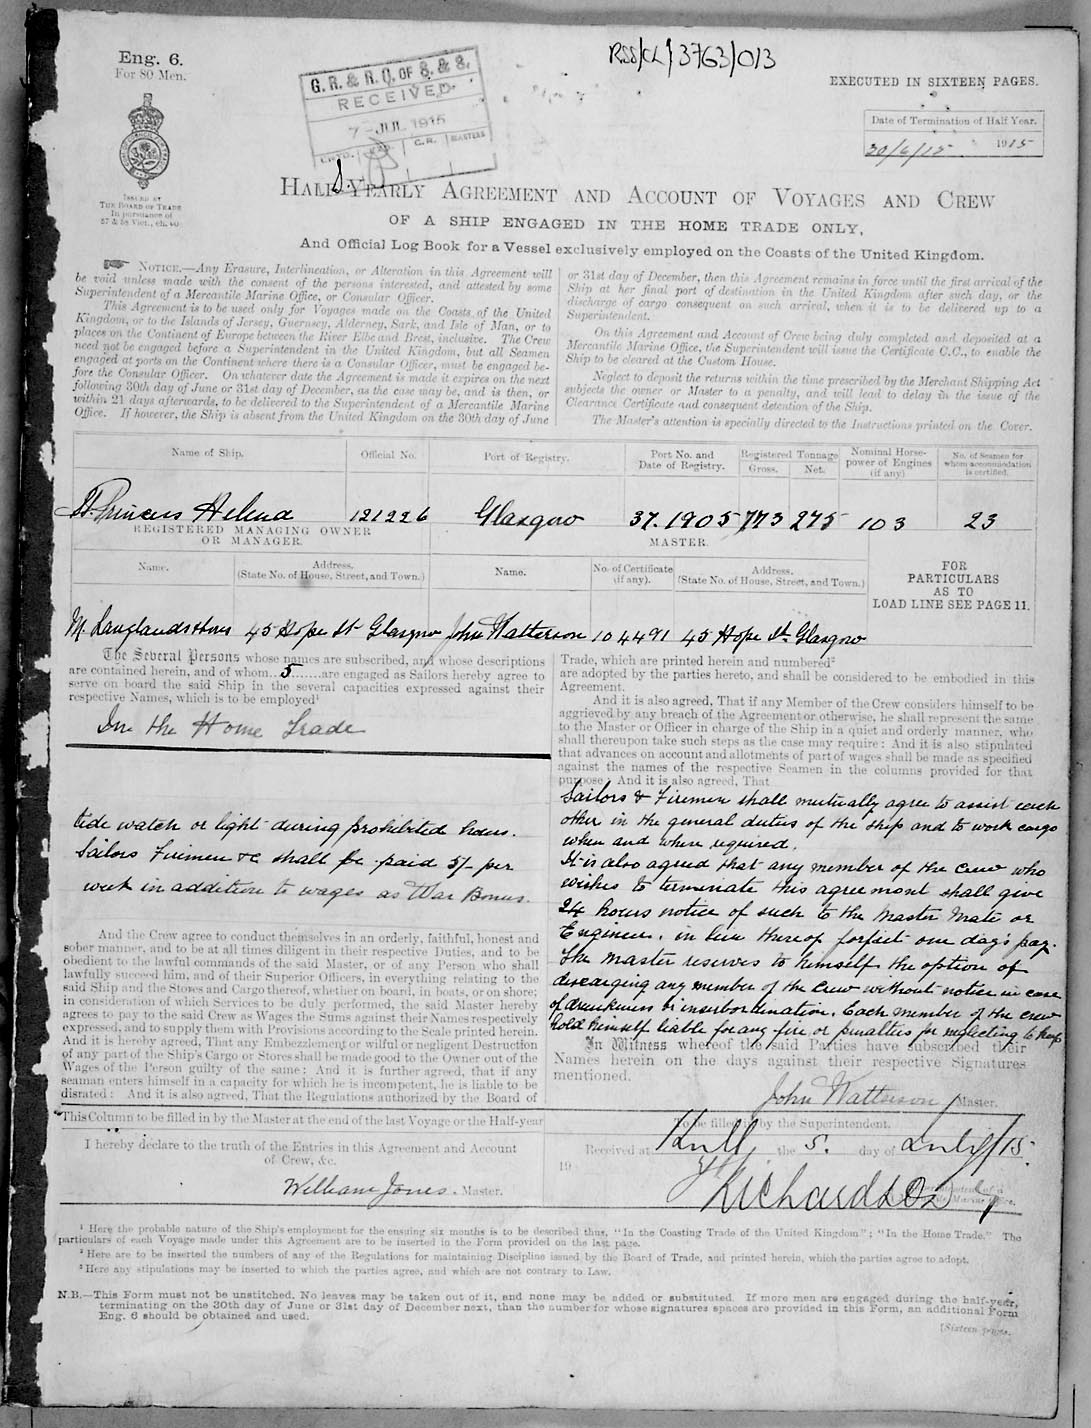 RSS/CL/3763/013
Eng. 6.
For 80 Men.
G. R. & R. O. OF S. & S.
RECEIVED
7 - JUL 1915
C.R.
MASTERS
EXECUTED IN SIXTEEN PAGES.
Date of Termination of Half Year.
30/6/15 1915
ISSUED BY
THE BOARD OF TRADE
In pursuance of
57 & 58 Vict., ch. 60
HALF-YEARLY AGREEMENT AND ACCOUNT OF VOYAGES AND CREW
OF A SHIP ENGAGED IN THE HOME TRADE ONLY,
And Official Log Book for a Vessel exclusively employed on the Coasts of the United Kingdom.
NOTICE.—Any Erasure, Interlineation, or Alteration in this Agreement will
be void unless made with the consent of the persons interested, and attested by some
Superintendent of a Mercantile Marine Office, or Consular Officer.
This Agreement is to be used only for Voyages made on the Coasts of the United
Kingdom, or to the Islands of Jersey, Guernsey, Alderney, Sark, and Isle of Man, or to
places on the Continent of Europe between the River Elbe and Brest, inclusive. The Crew
need not be engaged before a Superintendent in the United Kingdom, but all Seamen
engaged at ports on the Continent where there is a Consular Officer, must be engaged be-
fore the Consular Officer. On whatever date the Agreement is made it expires on the next
following 30th day of June or 31st day of December, as the case may be, and is then, or
within 21 days afterwards, to be delivered to the Superintendent of a Mercantile Marine
Office. If however, the Ship is absent from the United Kingdom on the 30th day of June
or 31st day of December, then this Agreement remains in force until the first arrival of the
Ship at her final port of destination in the United Kingdom after such day, or the
discharge of cargo consequent on such arrival, when it is to be delivered up to a
Superintendent.
On this Agreement and Account of Crew being duly completed and deposited at a
Mercantile Marine Office, the Superintendent will issue the Certificate C.C., to enable the
Ship to be cleared at the Custom House.
Neglect to deposit the returns within the time prescribed by the Merchant Shipping Act
subjects the owner or Master to a penalty, and will lead to delay in the issue of the
Clearance Certificate and consequent detention of the Ship.
The Master's attention is specially directed to the Instructions printed on the Cover.
Name of Ship. Official No. Port of Registry. Port No. and Date of Registry. Registered Tonnage Gross. Net. Nominal Horse-power of Engines (if any) No. of Seamen for whom accommodation is certified.
Princess Helena 121226 Glasgow 37. 1905 773 275 103 23
REGISTERED MANAGING OWNER
OR MANAGER.
MASTER.
Name. Address. (State No. of House, Street, and Town.) Name. No. of Certificate (if any). Address. (State No. of House, Street, and Town.)
FOR
PARTICULARS
AS TO
LOAD LINE SEE PAGE 11.
M. Langlands & Sons 45 Hope St Glasgow John Watterson 104491 45 Hope St. Glasgow
The Several Persons whose names are subscribed, and whose descriptions
are contained herein, and of whom 5 are engaged as Sailors hereby agree to
serve on board the said Ship in the several capacities expressed against their
respective Names, which is to be employed¹
In the Home Trade
tide watch or light during prohibited hours.
Sailors Firemen &c shall be paid 5/- per
week in addition to wages as War Bonus.
And the Crew agree to conduct themselves in an orderly, faithful, honest and
sober manner, and to be at all times diligent in their respective Duties, and to be
obedient to the lawful commands of the said Master, or of any Person who shall
lawfully succeed him, and of their Superior Officers, in everything relating to the
said Ship and the Stores and Cargo thereof, whether on board, in boats, or on shore;
in consideration of which Services to be duly performed, the said Master hereby
agrees to pay to the said Crew as Wages the Sums against their Names respectively
expressed, and to supply them with Provisions according to the Scale printed herein.
And it is hereby agreed, That any Embezzlement, or wilful or negligent Destruction
of any part of the Ship's Cargo or Stores shall be made good to the Owner out of the
Wages of the Person guilty of the same: And it is further agreed, that if any
seaman enters himself in a capacity for which he is incompetent, he is liable to be
disrated: And it is also agreed, That the Regulations authorized by the Board of
Trade, which are printed herein and numbered²
are adopted by the parties hereto, and shall be considered to be embodied in this
Agreement.
And it is also agreed, That if any Member of the Crew considers himself to be
aggrieved by any breach of the Agreement or otherwise, he shall represent the same
to the Master or Officer in charge of the Ship in a quiet and orderly manner, who
shall thereupon take such steps as the case may require: And it is also stipulated
that advances on account and allotments of part of wages shall be made as specified
against the names of the respective Seamen in the columns provided for that
purpose: And it is also agreed, That
Sailors & Firemen shall mutually agree to assist each
other in the general duties of the ship and to work cargo
when and where required.
It is also agreed that any member of the crew who
wishes to terminate this agreement shall give
24 hours notice of such to the Master Mate or
Engineer. in lieu thereof forfeit one day's pay.
The Master reserves to himself the option of
discarging any member of the crew without notice in case
of drunkness or insurbordination. Each member of the crew
hold himself liable for any fire or penalties for neglecting to keep
In Witness whereof the said Parties have subscribed their
Names herein on the days against their respective Signatures
mentioned.
John Watterson Master.
This Column to be filled in by the Master at the end of the last Voyage or the Half-year
I hereby declare to the truth of the Entries in this Agreement and Account
of Crew, &c.
William Jones. Master.
To be filled in by the Superintendent.
Received at Hull the 5. day of July/15.
19
Richardson
¹ Here the probable nature of the Ship's employment for the ensuing six months is to be described thus, "In the Coasting Trade of the United Kingdom"; "In the Home Trade." The
particulars of each Voyage made under this Agreement are to be inserted in the Form provided on the last page.
² Here are to be inserted the numbers of any of the Regulations for maintaining Discipline issued by the Board of Trade, and printed herein, which the parties agree to adopt.
³ Here any stipulations may be inserted to which the parties agree, and which are not contrary to Law.
N.B.—This Form must not be unstitched. No leaves may be taken out of it, and none may be added or substituted. If more men are engaged during the half-year,
terminating on the 30th day of June or 31st day of December next, than the number for whose signatures spaces are provided in this Form, an additional Form
Eng. 6 should be obtained and used.
[Sixteen pages.